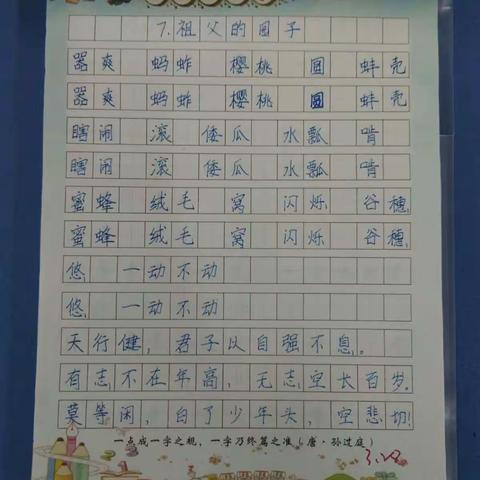 7.祖父的园子
嚣爽 蚂蚱 樱桃 圆 蚌壳
嚣爽 蚂蚱 樱桃 圆 蚌壳
瞎闹 滚 倭瓜 水瓢 啃
瞎闹 滚 倭瓜 水瓢 啃
蜜蜂 绒毛 窝 闪烁 谷穗
蜜蜂 绒毛 窝 闪烁 谷穗
悠 一动不动
悠 一动不动
天行健，君子以自强不息。
有志不在年高，无志空长百岁。
莫等闲，白了少年头，空悲切！
一点成一字之规，一字乃终篇之准（唐·孙过庭）
3.28